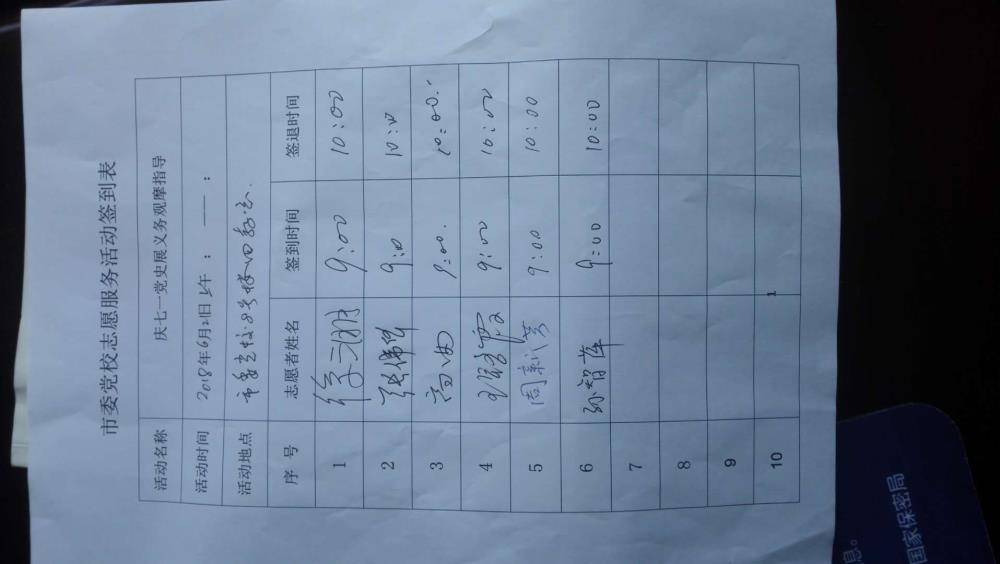 市委党校志愿服务活动签到表
活动名称 庆七一党史展义务观摩指导
活动时间 2018年6月21日上午 : —— :
活动地点 市委党校8号楼四
序 号 志愿者姓名 签到时间 签退时间
1 9:00 10:00
2 张伟华 9:00 10:00
3 9:00. 10:00.
4 9:00 10:00
5 周新芳 9:00 10:00
6 孙智萍 9:00 10:00
7
8
9
10
1
息。
国家保密局